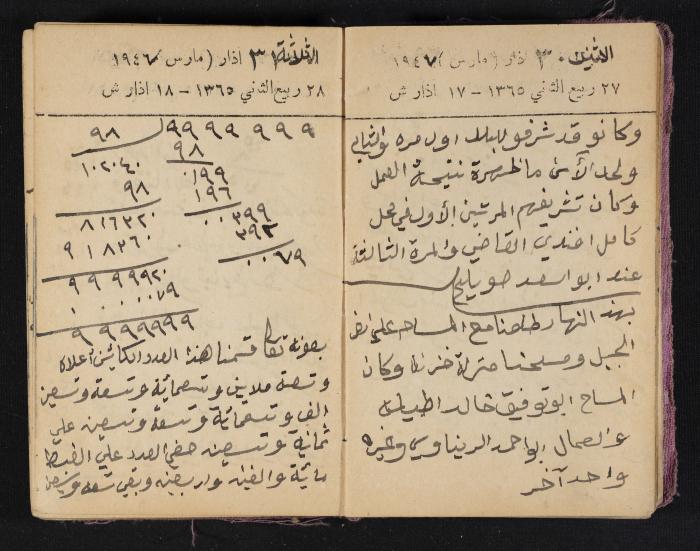 الاثنين ٣٠ اذار (مارس) ١٩٤٧
٢٧ ربيع الثاني ١٣٦٥ – ١٧ اذار ش
وكانو قد شرفو للبلد اول مره والثاني
ولحد الآن ما ظهرة نتيجة العمل
وكان تشريفهم المرتين الأول في محل
كامل افندي القاضي والمرة الثالثة
عند ابو اسعد صويلح
بهذ النهار طلعنا مع المساح على ارض
الجبل ومسحنا منزلة خزنا وكان
المساح ابو توفيق خالد
والعمال ابو احمد الريناوي وغيره
واحد آخر
الثلاثة ٣١ اذار (مارس) ١٩٤٦
٢٨ ربيع الثاني ١٣٦٥ – ١٨ اذار ش
٩٨ ٩٩٩٩٩٩٩
١٠٢٠٤٠ ٩٨
٩٨ ٠١٩٩
٨١٦٣٢٠ ١٩٦
٩١٨٣٦٠ ٠٠٣٩٩
٩٩٩٩٩٢٠ ٣٩٢
٠٠٠٠٠٧٩ ٠٠٧٩
٩٩٩٩٩٩٩
بعونه تعالى قسمنا هذا العدد الكائن أعلاه
وتسعة ملايين وتسعمائة وتسعة وتسعين
الف وتسعمائة وتسعة وتسعين على
ثمانية وتسعين صفي العدد على الضبط
مائية والفين واربعين وبقي تسعه وسبعين